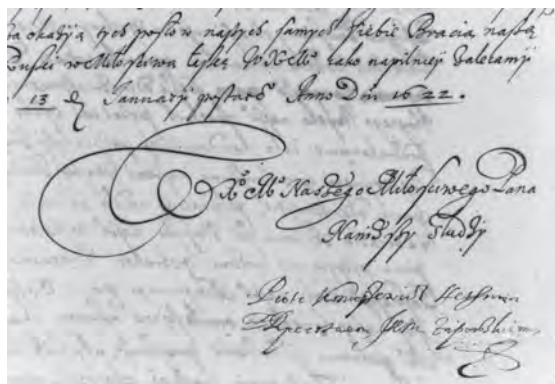 okazyią tych posłow naszych samych siebie Bracią naszę
Miłosciwą łaskę WXMci iako napilniey zalecamy
13 d Januarij postaro Anno Dni 1622.
WXMci Naszego Miłosciwego Pana
Naniższy słudzy
Piotr Konaszewicz Hethman
Zaporoskim